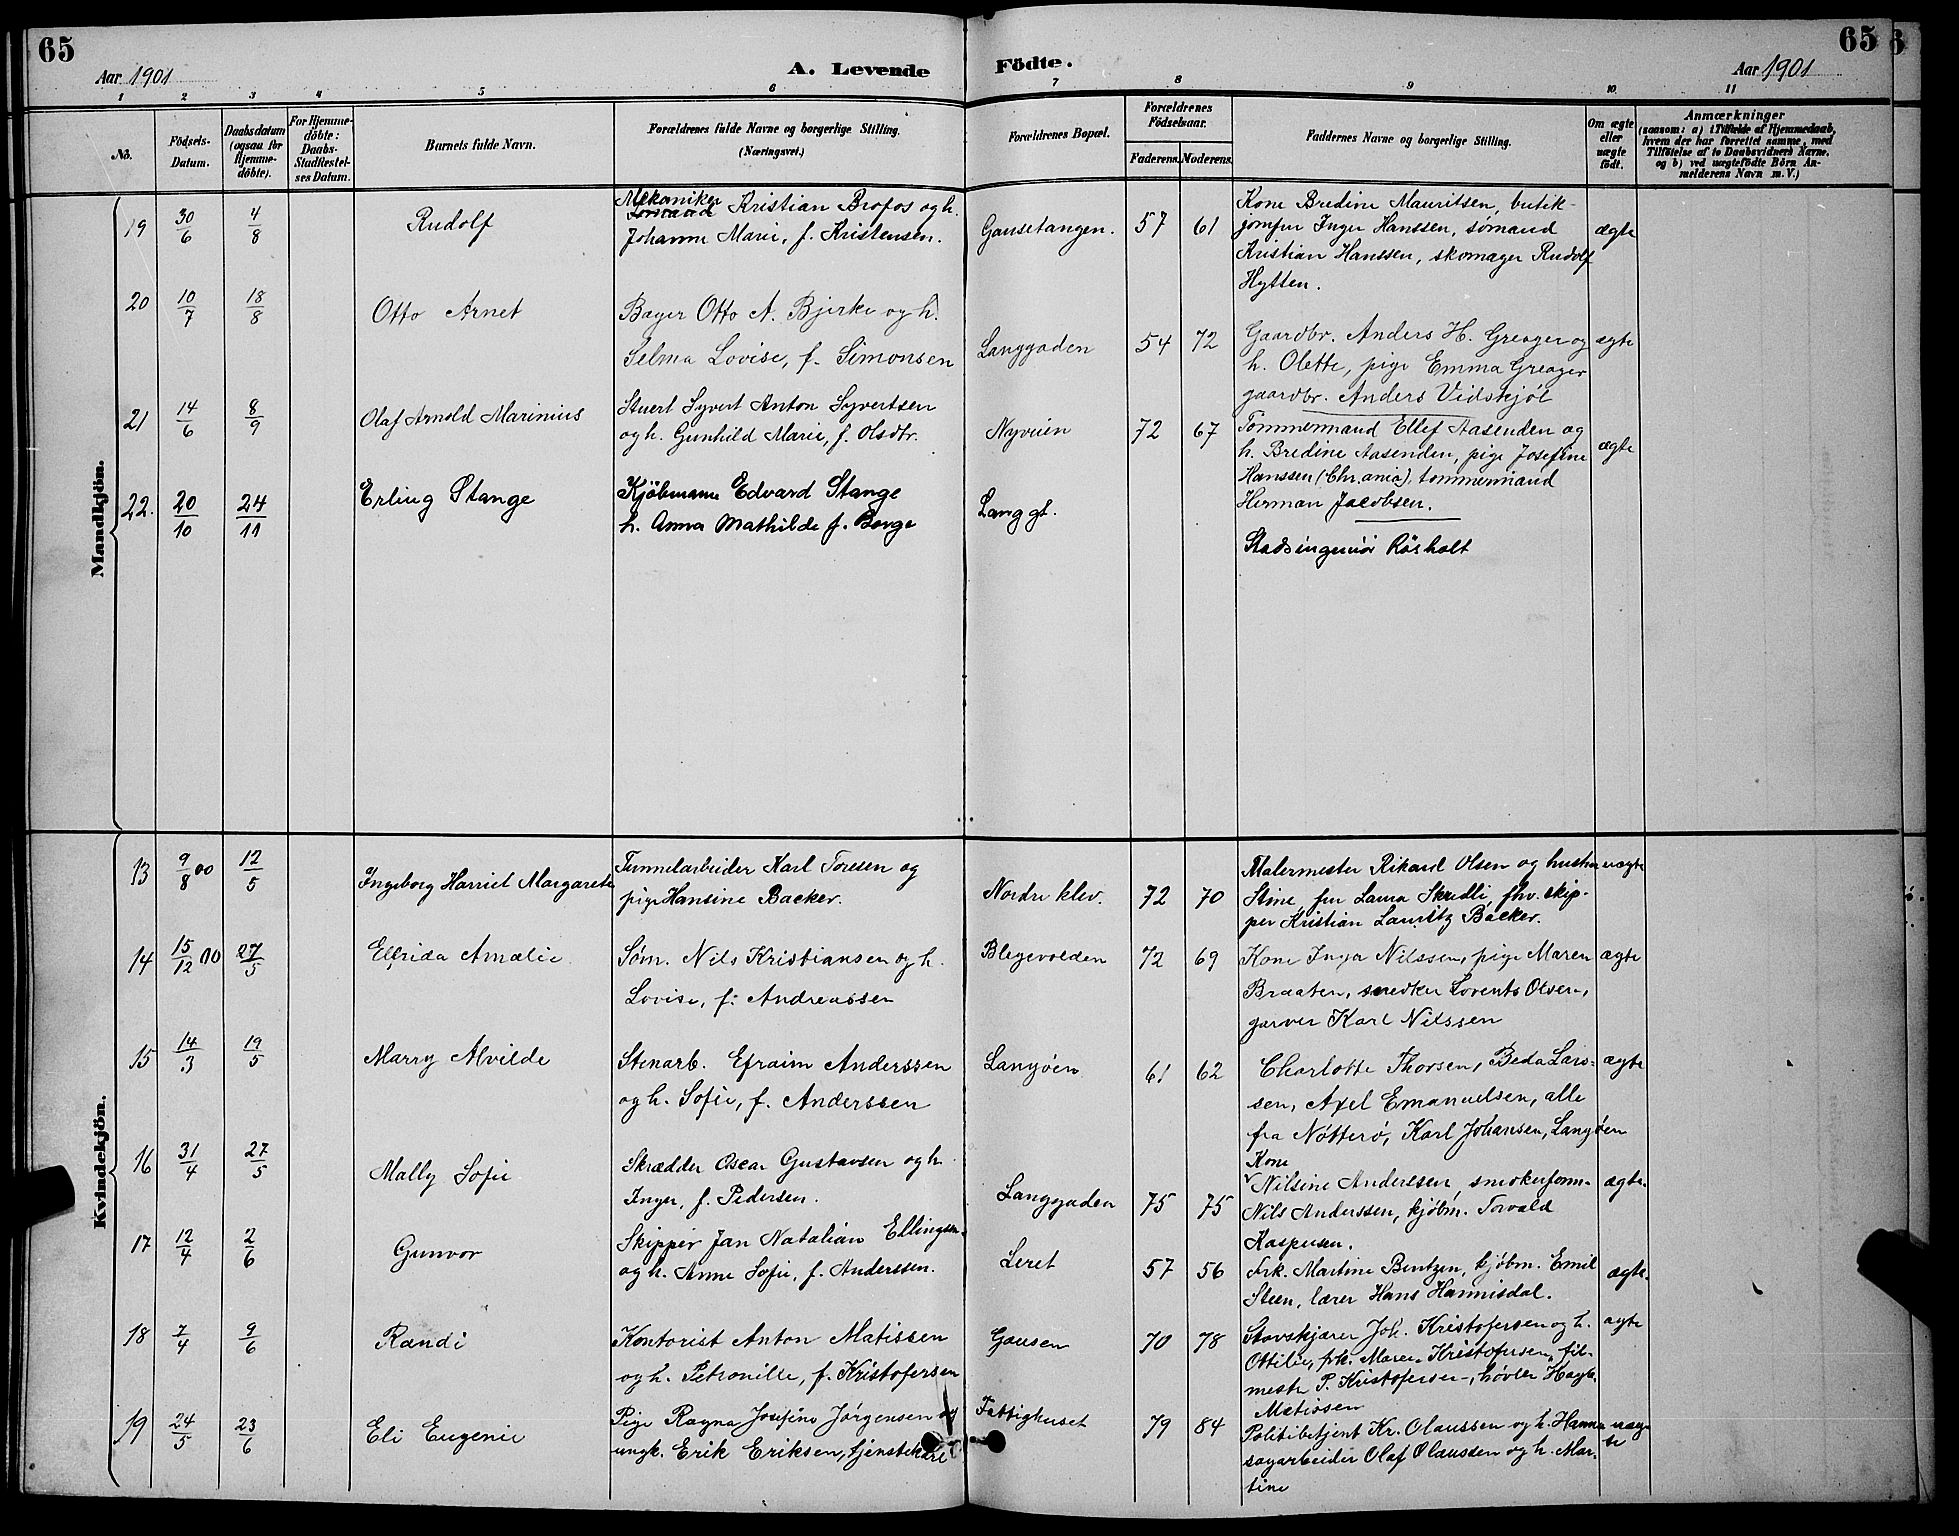 65
Aar 1901
A. Levende
Födte.
Aar 1901
65
1 2 3 4 5 6 7 8 9 10 11
No.
Födsels-Datum.
Daabsdatum (ogsaa for Hjemme-döbte).
For Hjemme-döbte: Daabs-Stadfæstel-ses Datum.
Barnets fulde Navn.
Forældrenes fulde Navne og borgerlige Stilling.
(Næringsvei.)
Forældrenes Bopæl.
Forældrenes Födselsaar.
Faderens. Moderens.
Faddernes Navne og borgerlige Stilling.
Om ægte eller uægte født.
Anmærkninger
(saasom: a) i Tilfælde af Hjemmedaab,
hvem der har forrettet samme, med
Tilföielse af to Daabsvidners Navne,
og b) ved uægtefödte Börn An-
melderens Navn m. V.)
Mandkjön.
19 30/6 4/8 Rudolf
Mekaniker
Kristian Brofos og h.
Johanne Marie, f. Kristensen.
Gausetangen. 57 61
Kone Bredine Mauritsen, butik-
jomfru Inger Hanssen, sømand
Kristian Hanssen, skomager Rudolf
Hytten.
ægte
20 10/7 18/8 Otto Arnet
Bager Otto A. Bjerke og h.
Selma Lovise, f. Simonsen
Langgaden 54 72
Gaardbr. Anders H. Greager og
h. Olette, pige Emma Greager
gaardbr. Anders Vidskjøl
ægte
21 14/6 8/9 Olaf Arnold Marinius
Stuert Syvert Anton Syvertsen
og h. Gunhild Marie, f. Olsdtr.
Nyveien 72 67
Tømmermand Ellef Aasenden og
h. Bredine Aasenden, pige Josefine
Hanssen (Chr.ania), tømmermand
Herman Jacobsen.
ægte
22. 20/10 24/11 Erling Stange
Kjöbmann Edvard Stange
h. Anna Mathilde f. Borge
Langgt.
Stadsingeniör Rösholt
Kvindekjön.
13 9/8 00 12/5 Ingeborg Harriet Margarete
Tunnelarbeider Karl Toresen og
pige Hansine Backer.
Nordre klev. 72 70
Malermester Rikard Olsen og hustru
Stine, fru Laura Skredli, fhv. skip-
per Kristian Lauritz Backer.
uægte
14 15/12 00 27/5 Elfrida Amalie
Søm. Nils Kristiansen og h.
Lovise, f. Andreassen
Blegevolden 72 69
Kone Inga Nilssen, pige Maren
Braaten, snedker Lorents Olsen,
garver Karl Nilssen
ægte
15 14/3 19/5 Marry Alvilde
Stenarb. Efraim Anderssen
og h. Sofie, f. Anderssen
Langøen 61 62
Charlotte Thorsen, Beda Lars-
sen, Axel Emanuelsen, alle
fra Nötterö, Karl Johansen, Langøen
ægte
16 31/4 27/5 Mally Sofie
Skrædder Oscar Gustavsen og h
Inger, f. Pedersen.
Langgaden 75 75
Kone
Nilsine Anderssen,
Nils Anderssen, kjøbm. Torvald
Kaspersen.
ægte.
17 12/4 2/6 Gunvor
Skipper Jan Natalian Ellingsen
og h. Anne Sofie, f. Anderssen.
Leret 57 56
Frk. Martine Bentzen, kjøbm. Emil
Steen, lærer Hans Hannisdal.
ægte.
18 7/4 9/6 Randi
Kontorist Anton Matissen
og h. Petronille, f. Kristofersen
Gausen 70 78
Stavskjærer Joh. Kristofersen og h.
Ottilie, frk. Maren Kristofersen, fil-
mester P. Kristofersen, høvler Hagb.
Matissen
ægte
19 24/5 23/6 Eli Eugenie
Pige Ragna Josefine Jörgensen og
ungk. Erik Eriksen, tjenstekarl
Fattighuset 79 84
Politibetjent Kr. Olaussen og h. Hanna
sagarbeider Olaf Olaussen og h. Mar-
tine
uæg-
te